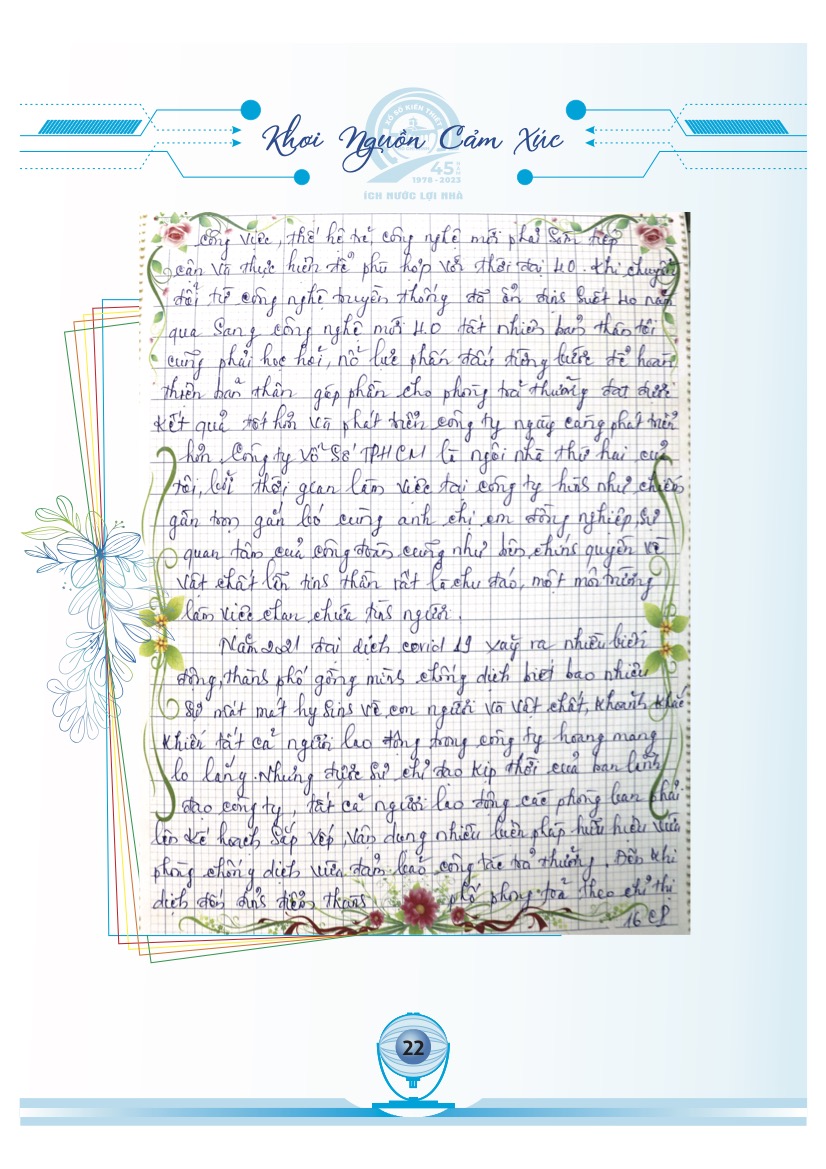 XỔ SỐ KIẾN THIẾT
Khơi Nguồn Cảm Xúc
45 NĂM
1978 - 2023
ÍCH NƯỚC LỢI NHÀ
công việc, thế hệ trẻ, công nghệ mới phải sớm tiếp
cận và thực hiện để phù hợp với thời đại 4.0. Khi chuyển
đổi từ công nghệ truyền thống đã ổn định suốt 40 năm
qua sang công nghệ mới 4.0 tất nhiên bản thân tôi
cũng phải học hỏi, nổ lực phấn đấu từng bước để hoàn
thiện bản thân góp phần cho phòng trả thưởng đạt được
kết quả tốt hơn và phát triển công ty ngày càng phát triển
hơn. Công ty Vổ Số TPHCM là ngôi nhà thứ hai của
tôi, bởi thời gian làm việc tại công ty hình như chiếm
gần trọn gắn bó cùng anh chị em đồng nghiệp, sự
quan tâm của công đoàn cũng như bên chính quyền về
vật chất lẫn tinh thần rất là chu đáo, một môi trường
làm việc chan chứa tình người.
Năm 2021 đại dịch covid 19 xảy ra nhiều biến
động, thành phố gồng mình chống dịch biết bao nhiêu
sự mất mát hy sinh về con người và vật chất, khoảnh khắc
khiến tất cả người lao động trong công ty hoang mang
lo lắng. Nhưng được sự chỉ đạo kịp thời của ban lãnh
đạo công ty, tất cả người lao động các phòng ban phải
lên kế hoạch sắp xếp, vận dụng nhiều biện pháp hữu hiệu vừa
phòng chống dịch vừa đảm bảo công tác trả thưởng. Đến khi
dịch đến đỉnh điểm thành phố phong toả theo chỉ thị
16 CP
22